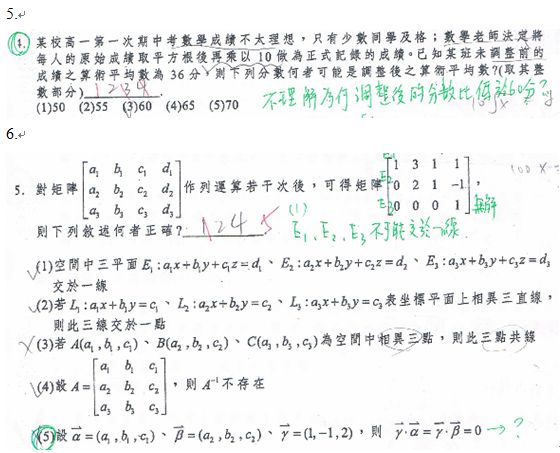 5.
4. 某校高一第一次期中考數學成績不太理想，只有少數同學及格；數學老師決定將
每人的原始成績取平方根後再乘以 10 做為正式記錄的成績。已知某班未調整前的
成績之算術平均數為 36 分，則下列分數何者可能是調整後之算術平均數？(取其整
數部分) 1 2 3 4 .
(1)50 (2)55 (3)60 (4)65 (5)70
不理解為何調整後的分數比低於60分?
6.
5. 對矩陣 [a₁ b₁ c₁ d₁
a₂ b₂ c₂ d₂
a₃ b₃ c₃ d₃] 作列運算若干次後，可得矩陣 [1 3 1 1
0 2 1 -1
0 0 0 1] ，
E₁ E₂ E₃ 無解
則下列敘述何者正確？ 1 2 4 5
(1) E₁、E₂、E₃不可能交於一線
(1)空間中三平面 E₁：a₁x+b₁y+c₁z=d₁、E₂：a₂x+b₂y+c₂z=d₂、E₃：a₃x+b₃y+c₃z=d₃
交於一線
(2)若 L₁：a₁x+b₁y=c₁、L₂：a₂x+b₂y=c₂、L₃：a₃x+b₃y=c₃表坐標平面上相異三直線，
則此三線交於一點
(3)若 A(a₁,b₁,c₁)、B(a₂,b₂,c₂)、C(a₃,b₃,c₃)為空間中相異三點，則此三點共線
(4)設 A= [a₁ b₁ c₁
a₂ b₂ c₂
a₃ b₃ c₃] ，則 A⁻¹不存在
(5)設 α⃗=(a₁,b₁,c₁)、β⃗=(a₂,b₂,c₂)、γ⃗=(1,-1,2)，則 γ⃗·α⃗=γ⃗·β⃗=0 → ?